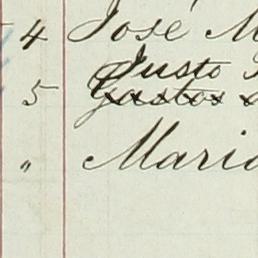 4 José M
Justo
5 Gastos
" Maria